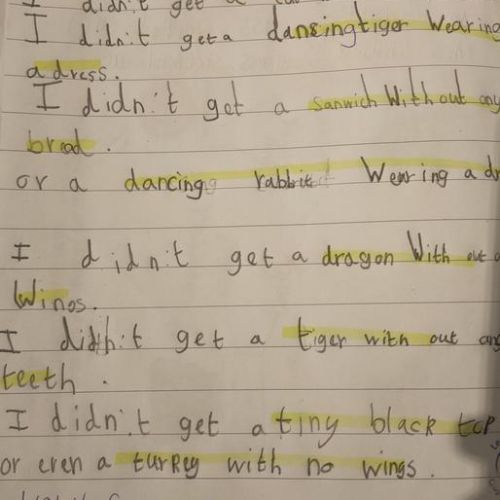 I didn't get a
I didn't get a dansingtiger Wearing
a dress.
I didn't get a sanwich Without any
brod.
or a dancing rabbit Wearing a
I didn't get a dragon With out
Wings.
I didn't get a tiger with out
teeth.
I didn't get a tiny black
or even a turkey with no wings.